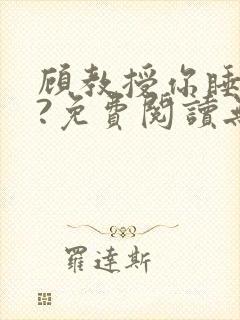 顾教授你睡
?免費閱讀無
羅達斯